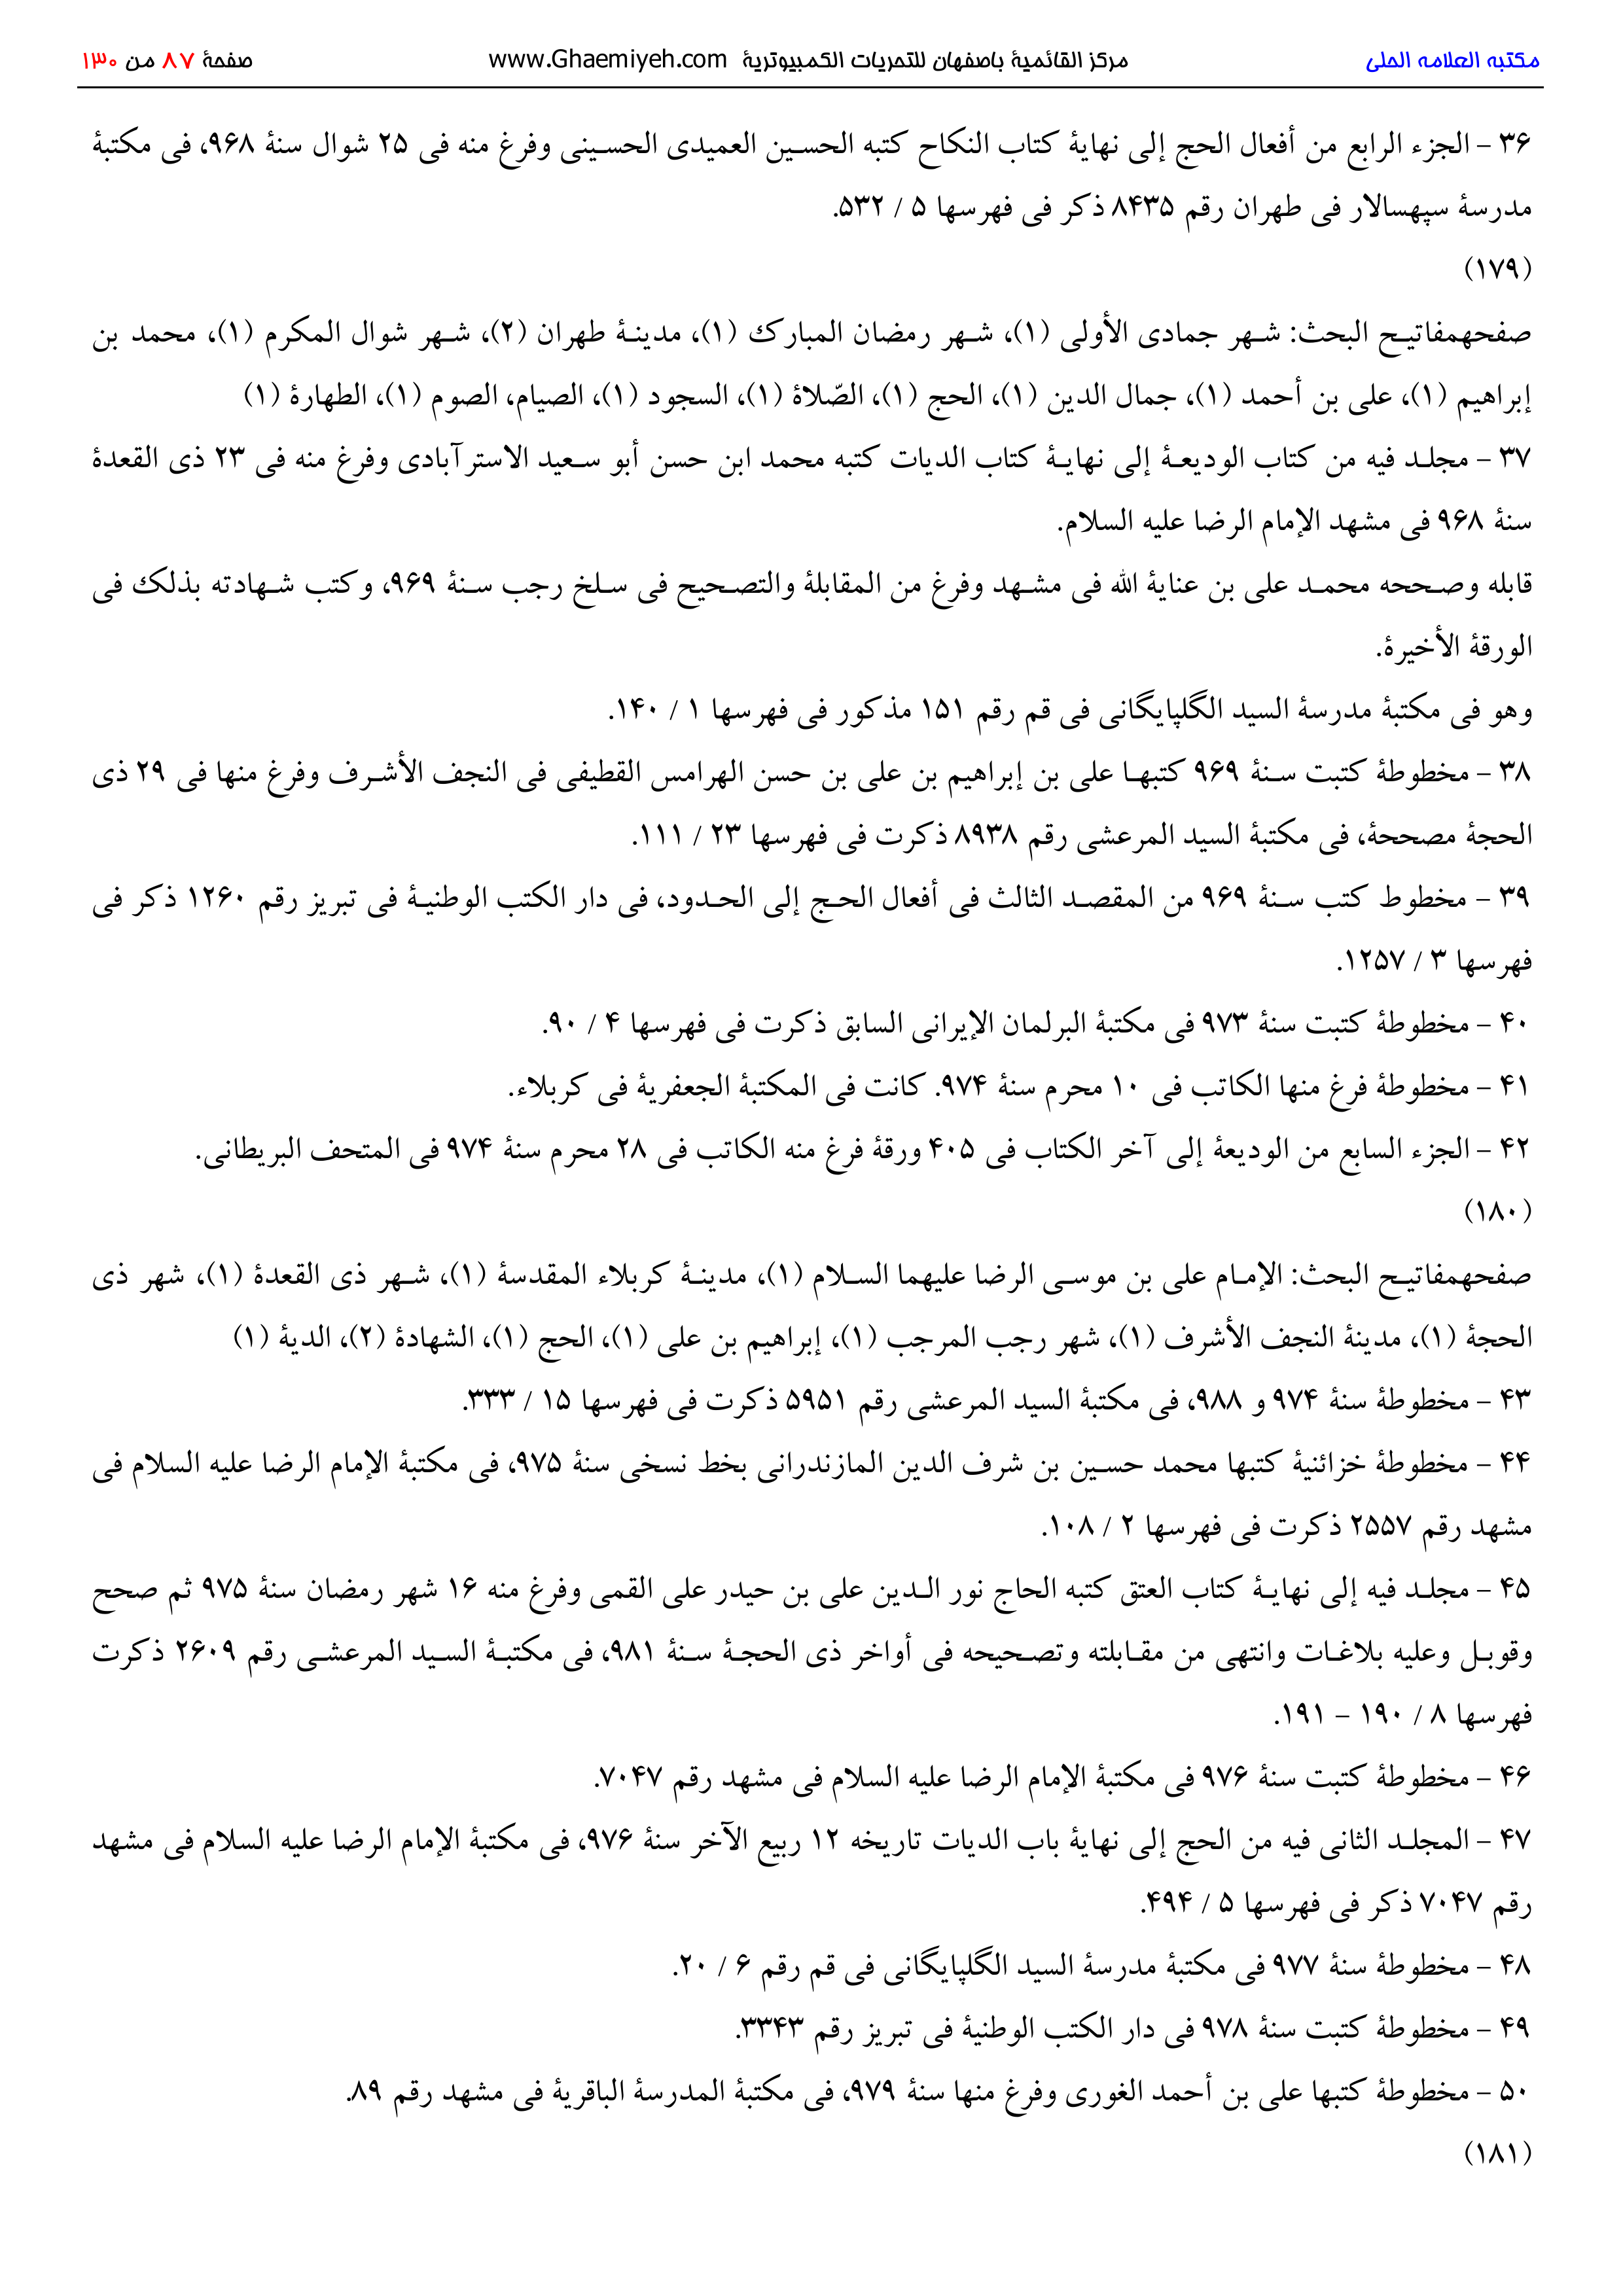 مكتبه العلامه الحلی مركز القائمیۀ باصفهان للتحریات الكمبیوتریۀ www.Ghaemiyeh.com صفحۀ ۸۷ من ۱۳۰
۳۶ - الجزء الرابع من أفعال الحج إلی نهایۀ كتاب النكاح كتبه الحسین العمیدی الحسینی وفرغ منه فی ۲۵ شوال سنۀ ۹۶۸، فی مكتبۀ
مدرسۀ سپهسالار فی طهران رقم ۸۴۳۵ ذكر فی فهرسها ۵ / ۵۳۲.
(۱۷۹)
صفحهمفاتیح البحث: شهر جمادی الأولی (۱)، شهر رمضان المبارك (۱)، مدینۀ طهران (۲)، شهر شوال المكرم (۱)، محمد بن
إبراهیم (۱)، علی بن أحمد (۱)، جمال الدین (۱)، الحج (۱)، الصّلاة (۱)، السجود (۱)، الصیام، الصوم (۱)، الطهارة (۱)
۳۷ - مجلد فیه من كتاب الودیعۀ إلی نهایۀ كتاب الدیات كتبه محمد ابن حسن أبو سعید الاسترآبادی وفرغ منه فی ۲۳ ذی القعدة
سنۀ ۹۶۸ فی مشهد الإمام الرضا علیه السلام.
قابله وصححه محمد علی بن عنایۀ الله فی مشهد وفرغ من المقابلۀ والتصحیح فی سلخ رجب سنۀ ۹۶۹، وكتب شهادته بذلك فی
الورقۀ الأخیرة.
وهو فی مكتبۀ مدرسۀ السید الگلپایگانی فی قم رقم ۱۵۱ مذكور فی فهرسها ۱ / ۱۴۰.
۳۸ - مخطوطۀ كتبت سنۀ ۹۶۹ كتبها علی بن إبراهیم بن علی بن حسن الهرامس القطیفی فی النجف الأشرف وفرغ منها فی ۲۹ ذی
الحجۀ مصححۀ، فی مكتبۀ السید المرعشی رقم ۸۹۳۸ ذكرت فی فهرسها ۲۳ / ۱۱۱.
۳۹ - مخطوط كتب سنۀ ۹۶۹ من المقصد الثالث فی أفعال الحج إلی الحدود، فی دار الكتب الوطنیۀ فی تبریز رقم ۱۲۶۰ ذكر فی
فهرسها ۳ / ۱۲۵۷.
۴۰ - مخطوطۀ كتبت سنۀ ۹۷۳ فی مكتبۀ البرلمان الإیرانی السابق ذكرت فی فهرسها ۴ / ۹۰.
۴۱ - مخطوطۀ فرغ منها الكاتب فی ۱۰ محرم سنۀ ۹۷۴. كانت فی المكتبۀ الجعفریۀ فی كربلاء.
۴۲ - الجزء السابع من الودیعۀ إلی آخر الكتاب فی ۴۰۵ ورقۀ فرغ منه الكاتب فی ۲۸ محرم سنۀ ۹۷۴ فی المتحف البریطانی.
(۱۸۰)
صفحهمفاتیح البحث: الإمام علی بن موسی الرضا علیهما السلام (۱)، مدینۀ كربلاء المقدسۀ (۱)، شهر ذی القعدة (۱)، شهر ذی
الحجۀ (۱)، مدینۀ النجف الأشرف (۱)، شهر رجب المرجب (۱)، إبراهیم بن علی (۱)، الحج (۱)، الشهادة (۲)، الدیۀ (۱)
۴۳ - مخطوطۀ سنۀ ۹۷۴ و ۹۸۸، فی مكتبۀ السید المرعشی رقم ۵۹۵۱ ذكرت فی فهرسها ۱۵ / ۳۳۳.
۴۴ - مخطوطۀ خزائنیۀ كتبها محمد حسین بن شرف الدین المازندرانی بخط نسخی سنۀ ۹۷۵، فی مكتبۀ الإمام الرضا علیه السلام فی
مشهد رقم ۲۵۵۷ ذكرت فی فهرسها ۲ / ۱۰۸.
۴۵ - مجلد فیه إلی نهایۀ كتاب العتق كتبه الحاج نور الدین علی بن حیدر علی القمی وفرغ منه ۱۶ شهر رمضان سنۀ ۹۷۵ ثم صحح
وقوبل وعلیه بلاغات وانتهی من مقابلته وتصحیحه فی أواخر ذی الحجۀ سنۀ ۹۸۱، فی مكتبۀ السید المرعشی رقم ۲۶۰۹ ذكرت
فهرسها ۸ / ۱۹۰ - ۱۹۱.
۴۶ - مخطوطۀ كتبت سنۀ ۹۷۶ فی مكتبۀ الإمام الرضا علیه السلام فی مشهد رقم ۷۰۴۷.
۴۷ - المجلد الثانی فیه من الحج إلی نهایۀ باب الدیات تاریخه ۱۲ ربیع الآخر سنۀ ۹۷۶، فی مكتبۀ الإمام الرضا علیه السلام فی مشهد
رقم ۷۰۴۷ ذكر فی فهرسها ۵ / ۴۹۴.
۴۸ - مخطوطۀ سنۀ ۹۷۷ فی مكتبۀ مدرسۀ السید الگلپایگانی فی قم رقم ۶ / ۲۰.
۴۹ - مخطوطۀ كتبت سنۀ ۹۷۸ فی دار الكتب الوطنیۀ فی تبریز رقم ۳۳۴۳.
۵۰ - مخطوطۀ كتبها علی بن أحمد الغوری وفرغ منها سنۀ ۹۷۹، فی مكتبۀ المدرسۀ الباقریۀ فی مشهد رقم ۸۹.
(۱۸۱)